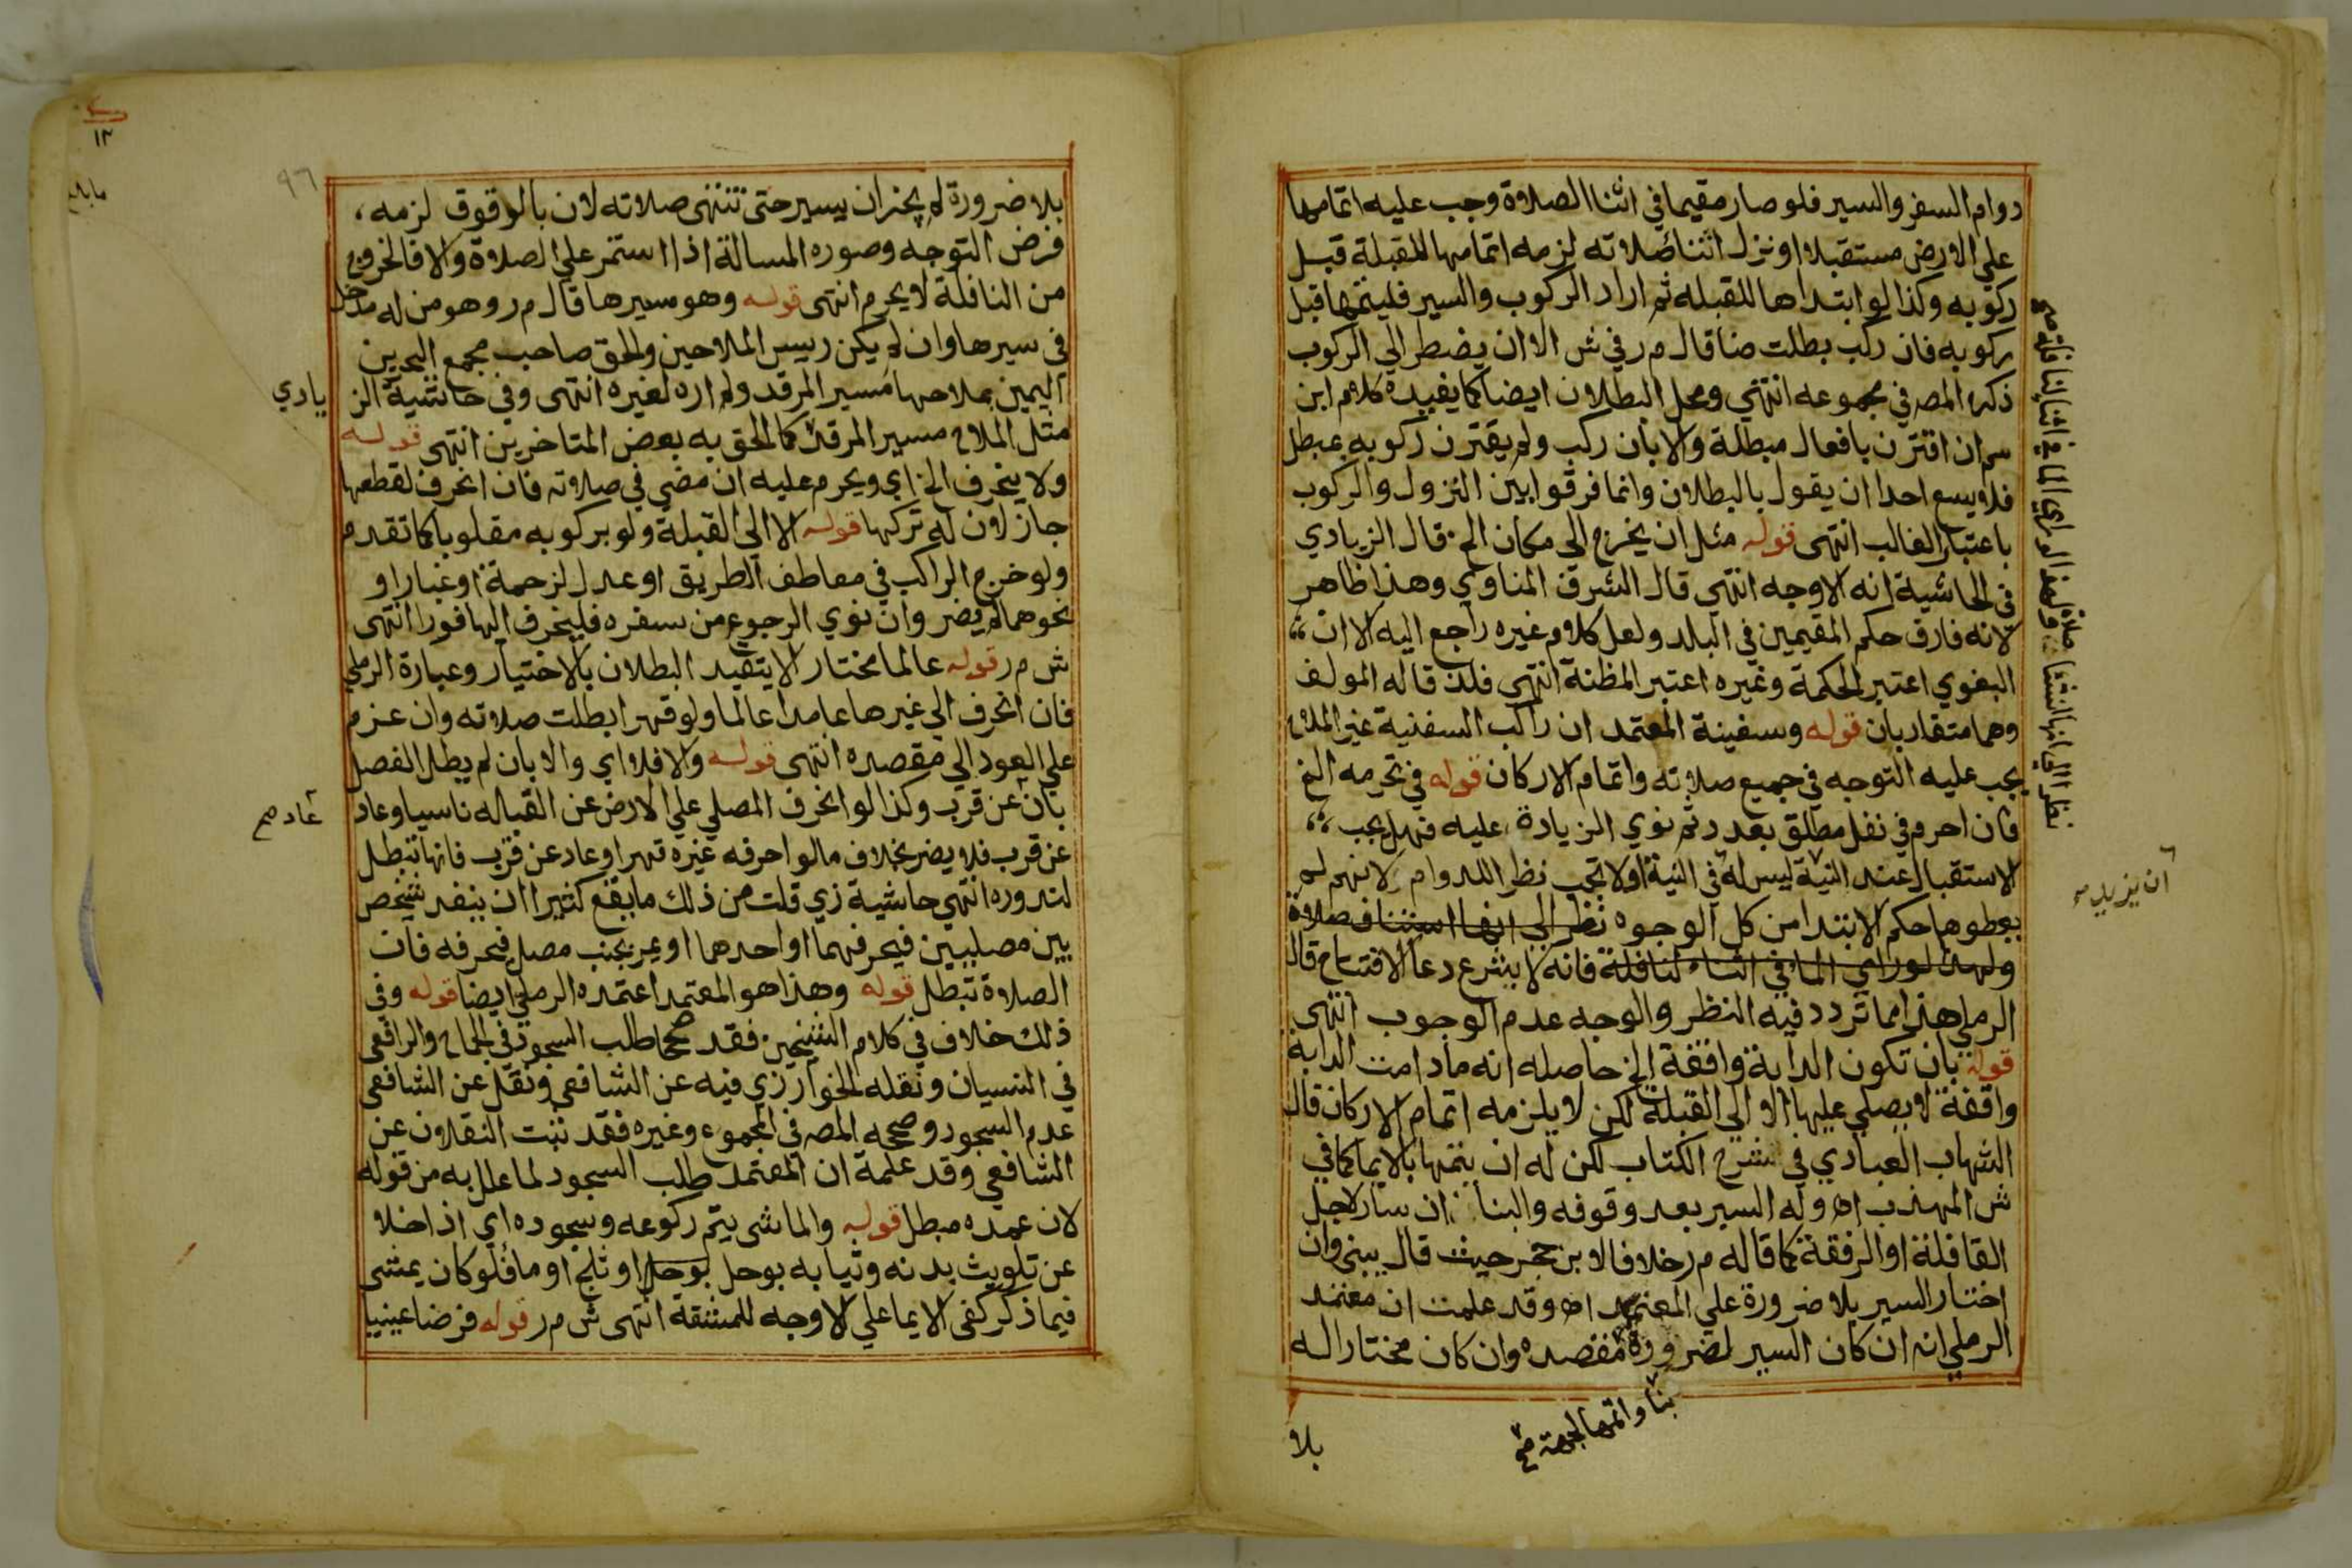 دوام السفر والسير فلو صار مقيما في اثنا الصلاة وجب عليه اتمامها
علي الارض مستقبلا او نزل اثنا صلاته لزمه اتمامها للقبلة قبل
ركوبه وكذا لو ابتداها للقبله ثم اراد الركوب والسير فليتمها قبل
ركوبه فان ركب بطلت صنا قال م ر في ش الا ان يضطر الي الركوب
ذكره المص في مجموعه انتهي ومحل البطلان ايضا كما يفيده كلام ابن
سم ان اقترن بافعال مبطلة والا بان ركب ولم يقترن ركوبه بمبطل
فلا يسع احدا ان يقول بالبطلان وانما فرقوا بين النزول والركوب
باعتبار الغالب انتهى قوله مثل ان يخرج الى مكان الخ قال الزيادي
في الحاشية انه الاوجه انتهي قال الشرف المناوي وهذا ظاهر
لانه فارق حكم المقيمين في البلد ولعل كلام غيره راجع اليه الا ان
البغوي اعتبر الحكمة وغيره اعتبر المظنة انتهي فلذ قاله المولف
وهما متقاربان قوله وسفينة المعتمد ان راكب السفنية غير الملاح
يجب عليه التوجه في جميع صلاته واتمام الاركان قوله في تحرمه الخ
فان احرم في نفل مطلق بعدد ثم نوي الزيادة عليه فهل يجب
الاستقبال عند النية ليس له في النية اولا تجب نظر اللدوام لانهم لم
يعطوها حكم الابتدا من كل الوجوه نظر الى انها استئناف صلاة
ولهذا لو راي الما في اثناء لنافلة فانه لا يشرع دعا الافتتاح قال
الرملي هذا مما تردد فيه النظر والوجه عدم الوجوب انتهى
قوله بان تكون الدابة واقفة الخ حاصله انه ما دامت الدابة
واقفة لا يصلي عليها الا الى القبلة لكن لا يلزمه اتمام الاركان قال
الشهاب العبادي في شرح الكتاب لكن له ان يتمها بالايما كما في
ش المهذب اه وله السير بعد وقوفه والبنا ان سار لاجل
القافلة او الرفقة كما قاله م ر خلافا لابن حجر حيث قال يبني وان
اختار السير بلا ضرورة علي المعتمد اه وقد علمت ان معتمد
الرملي انه ان كان السير لضرورة مقصده وان كان مختارا له
بنا واتمها لجهة صح
بلا
صلاة ولهذا لو راي الما في اثنا
نظر الي انها استئنا
ان يزيد
١٢
٩٦
بلا ضرورة لم يجز ان يسير حتى تنتهى صلاته لان بالوقوف لزمه
فرض التوجه وصوره المسالة اذا استمر علي الصلاة والا فالخروج
من النافلة لا يحرم انتهى قوله وهو مسيرها قال م ر وهو من له مدخل
في سيرها وان لم يكن رييس الملاحين والحق صاحب مجمع البحرين
اليمين بملاحها مسير المرقد ولم اره لغيره انتهى وفي حاشية الز
يادي
مثل الملاح مسير المرقد كما الحق به بعض المتاخرين انتهى قوله
ولا ينحرف الخ اي ويحرم عليه ان مضي في صلاته فان انحرف لقطعها
جاز لان له تركها قوله الا الي القبلة ولو بركوبه مقلوبا كما تقدم
ولو خرج الراكب في معاطف الطريق او عدل لزحمة او غبار او
نحوهما لم يضر وان نوي الرجوع من سفره فلينحرف اليها فورا انتهى
ش م ر قوله عالما مختار الا يتقيد البطلان بالاختيار وعبارة الرملي
فان انحرف الي غيرها عامدا عالما ولو قهرا بطلت صلاته وان عزم
علي العود الي مقصده انتهى قوله والا فلا اي والا بان لم يطل الفصل
بان عن قرب وكذا لو انحرف المصلي علي الارض عن القباله ناسيا وعاد
عاد صح
عن قرب فلا يضر بخلاف ما لو احرفه غيره قهرا وعاد عن قرب فانها تبطل
لندوره انتهي حاشية زي قلت من ذلك ما يقع كثيرا ان ينفد شخص
بين مصليين فيحرفهما او احدهما او يمر بجنب مصل فيحرفه فان
الصلاة تبطل قوله وهذا هو المعتمد اعتمده الرملي ايضا قوله وفي
ذلك خلاف في كلام الشيخين فقد صححا طلب السجود في الجماح والرافعي
في النسيان ونقله الخوارزي فيه عن الشافعى ونقل عن الشافعي
عدم السجود وصححه المص في المجموع وغيره فقد ثبت النقلان عن
الشافعي وقد علمة ان المعتمد طلب السجود لما علل به من قوله
لان عمده مبطل قوله والماشى يتم ركوعه وسجوده اي اذا خلا
عن تلويث بدنه وثيابه بوحل بوحل او ثلج او ما فلو كان يمشى
فيما ذكر كفى الايما علي الاوجه للمشقة انتهى ش م ر قوله فرضا عينيا